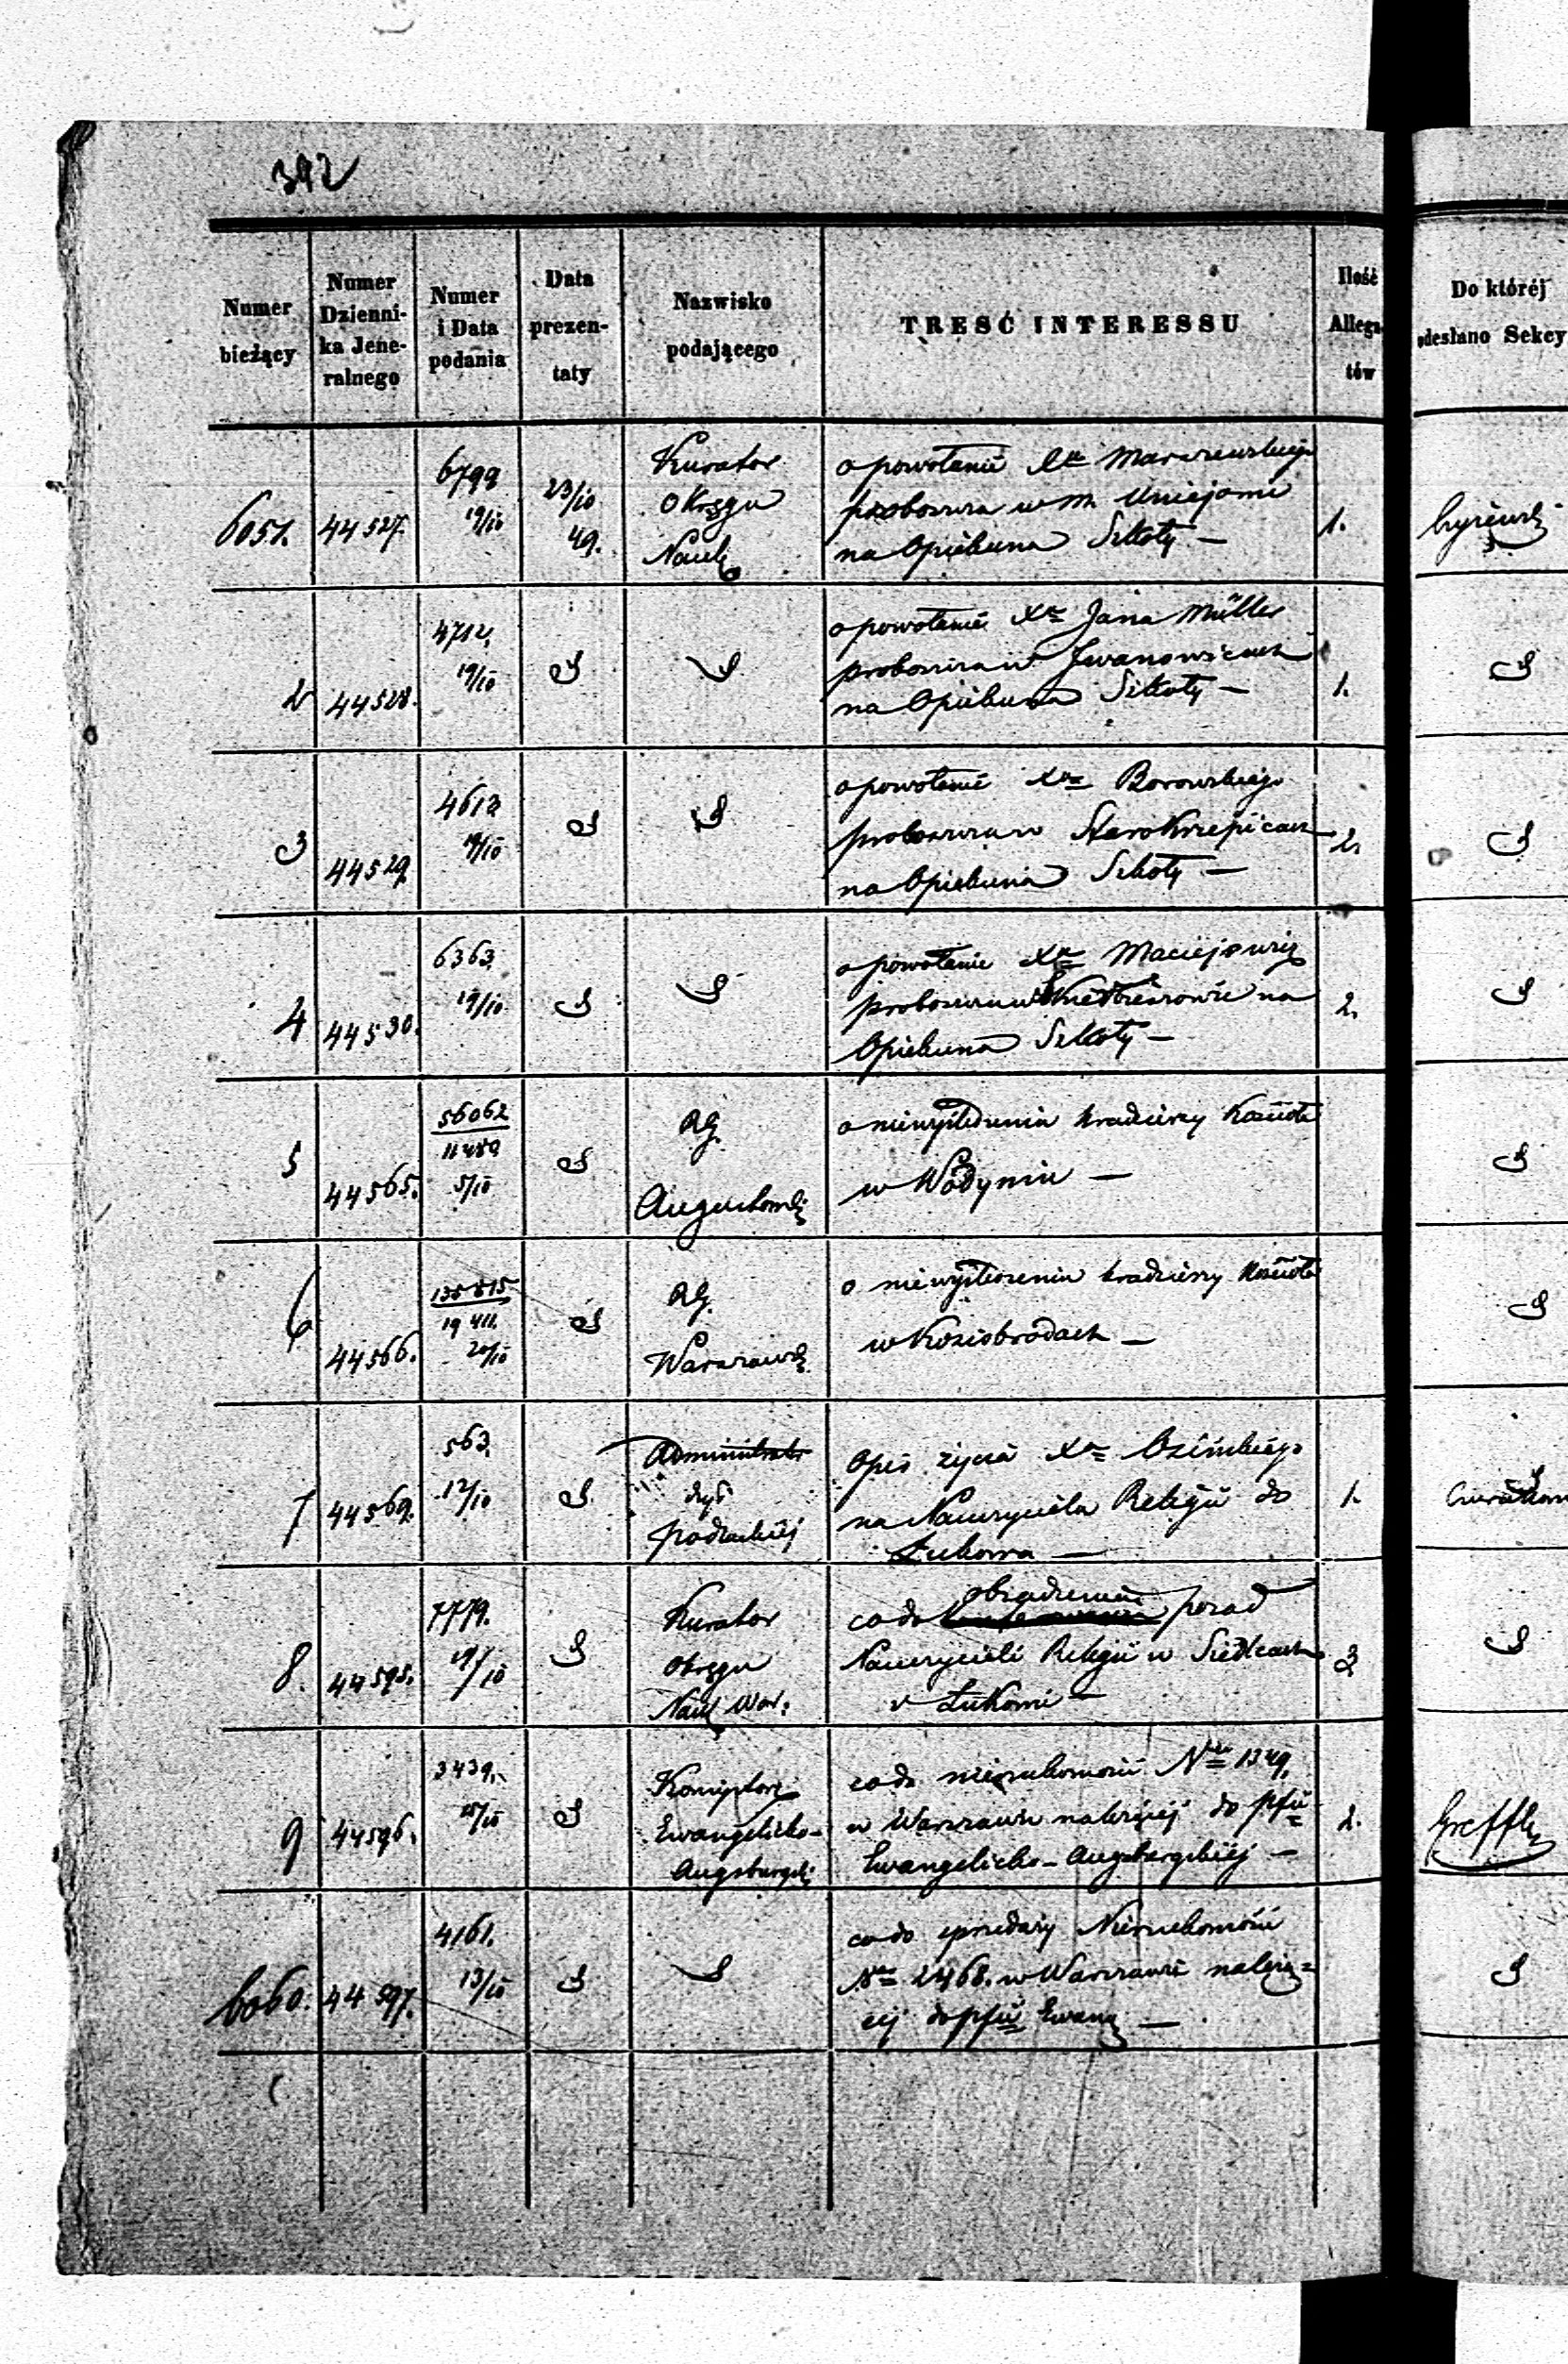 392
Numer bieżący
Numer Dzienni-ka Jene-ralnego
Numer i Data podania
Data prezen-taty
Nazwisko podającego
TREŚĆ INTERESSU
Ilość Allega-tów
Do któréj odesłano Sekcy
6051. 44527. 6799 19/10 23/10 49. 1.
Kurator
Okręgu
Nauk
o powołanie Xa Maraszewskiego
proboszcza w m. Uniejowie
na Opiekuna Szkoły —
2 44528. 4712. 19/10 1.
o powołanie Xa Jana Müller
proboszcza w Iwanowicach
na Opiekuna Szkoły —
3 44529. 4612 19/10 2.
o powołanie Xa Borowskiego
proboszcza w Starokrzepicach
na Opiekuna Szkoły —
4 44530. 6363. 19/10 2.
o powołanie Xa Maciejowicz
proboszcza w na
Opiekuna Szkoły —
5 44565. 56062 5/10
RG.
Augustows
o niewyśledzeniu kradzieży Kościoła
w Wodyniu —
6 44566. 19 411. 20/10
RG.
Warszaws
o niewyśledzeniu kradzieży Kościoła
w Koziebrodach —
7 44569. 563. 12/10 1.
Administrator
dyĕ
podlaskiéj
Opis życia Xa Osińskiego
na Nauczyciela Religii do
Łukowa —
8. 44595. 7779. 19/10
Kurator
Okręgu
Nauk War:
obsadzenia
co do posad
Nauczycieli Religii w Siedlcach
i Łukowie —
9 44596. 3439. 2.
Konsystorz
Ewangelicko-
Augsburgski
co do nieruchomości Nro 1349.
w Warszawie należącej do pfii
Ewangelicko-Augsburgskiéj —
Greffk
6060. 44597. 4161. 13/10
co do sprzedaży Nieruchomości
Nro 2468. w Warszawie należą=
cej do pfii Ewang —